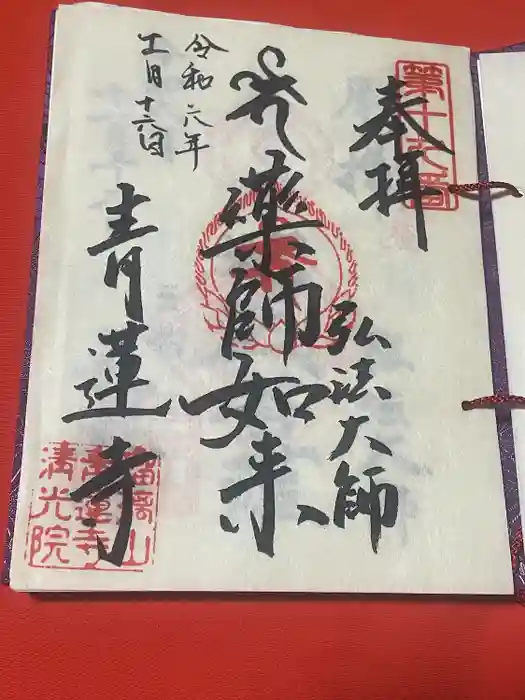 第十九番
奉拝
弘法大師
薬師如来
令和六年
十一月十六日
青蓮寺
瑠璃山
青蓮寺
清光院